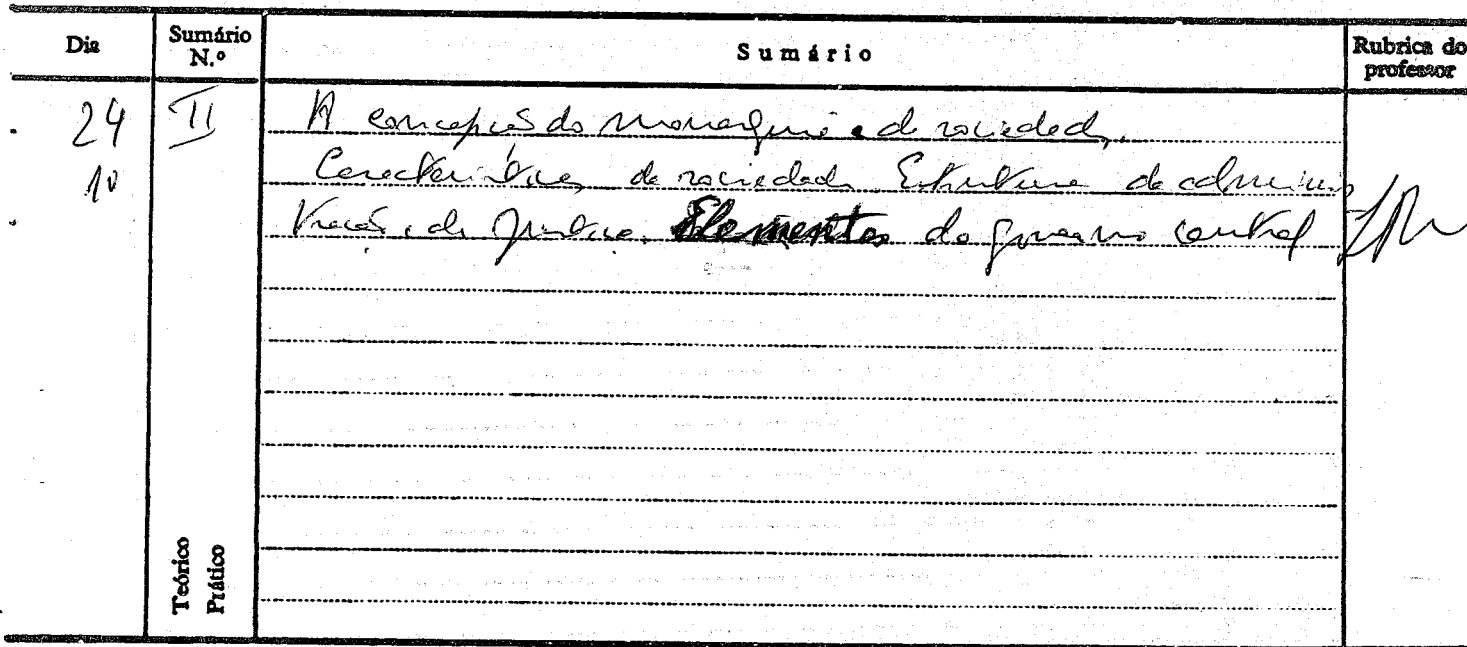 Dia Sumário N.º Sumário Rubrica do professor
24 II A concepção da monarquia e da sociedade.
10 Características da sociedade Estrutura da adminis
tração da justiça. Elementos do governo central
Teórico
Prático